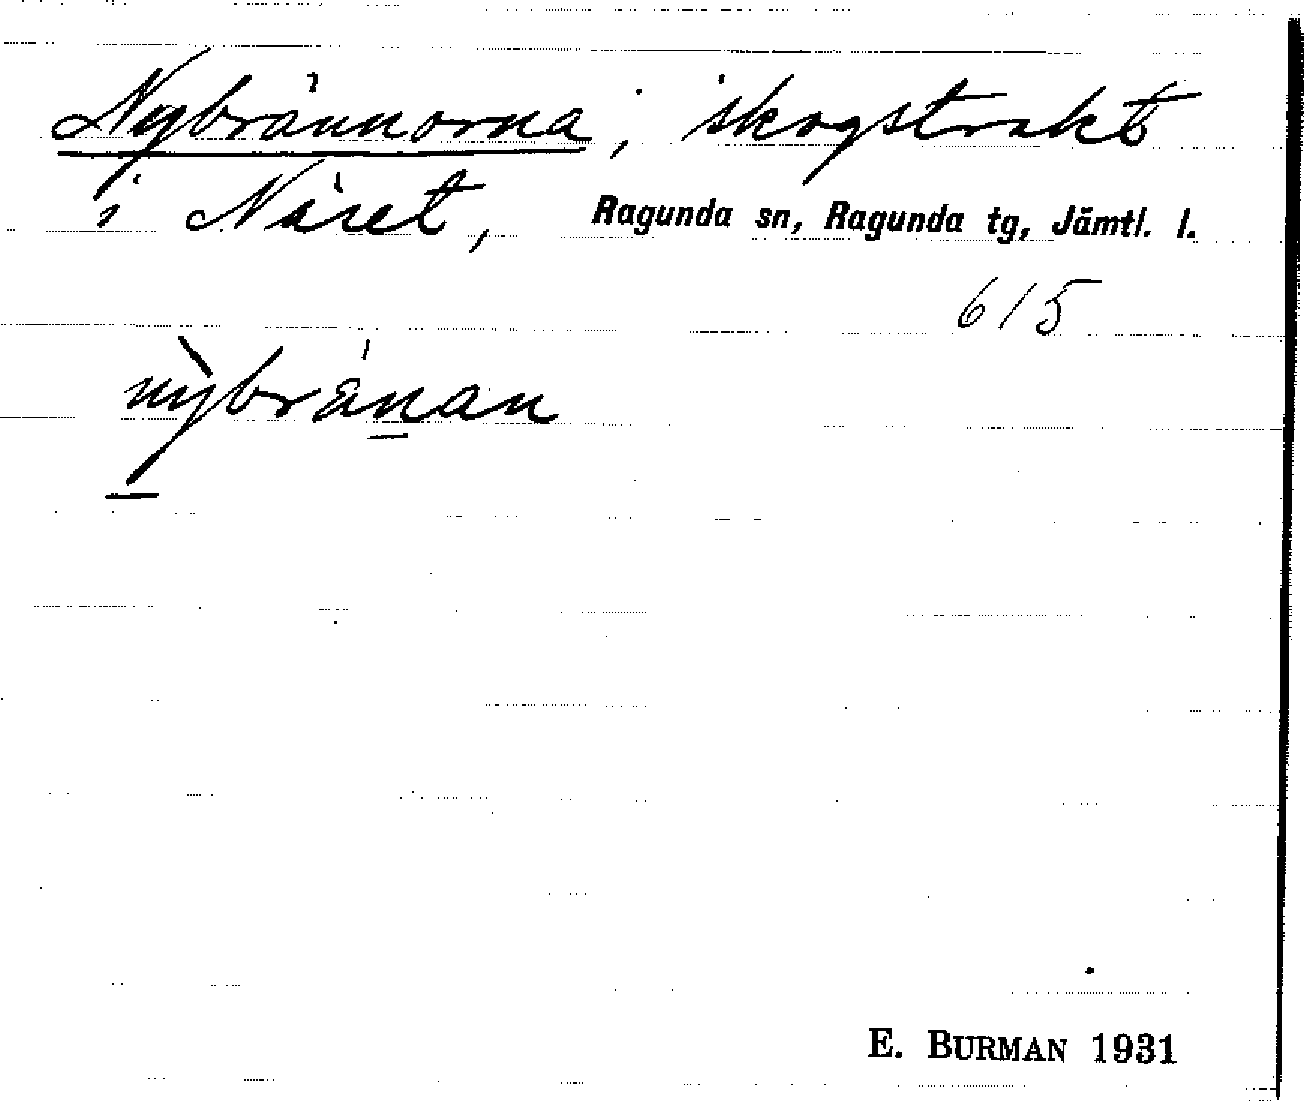 Nybrännorna, skogstrakt
i Näset, Ragunda sn, Ragunda tg, Jämtl. l.
615
nỳbränan
E. BURMAN 1931